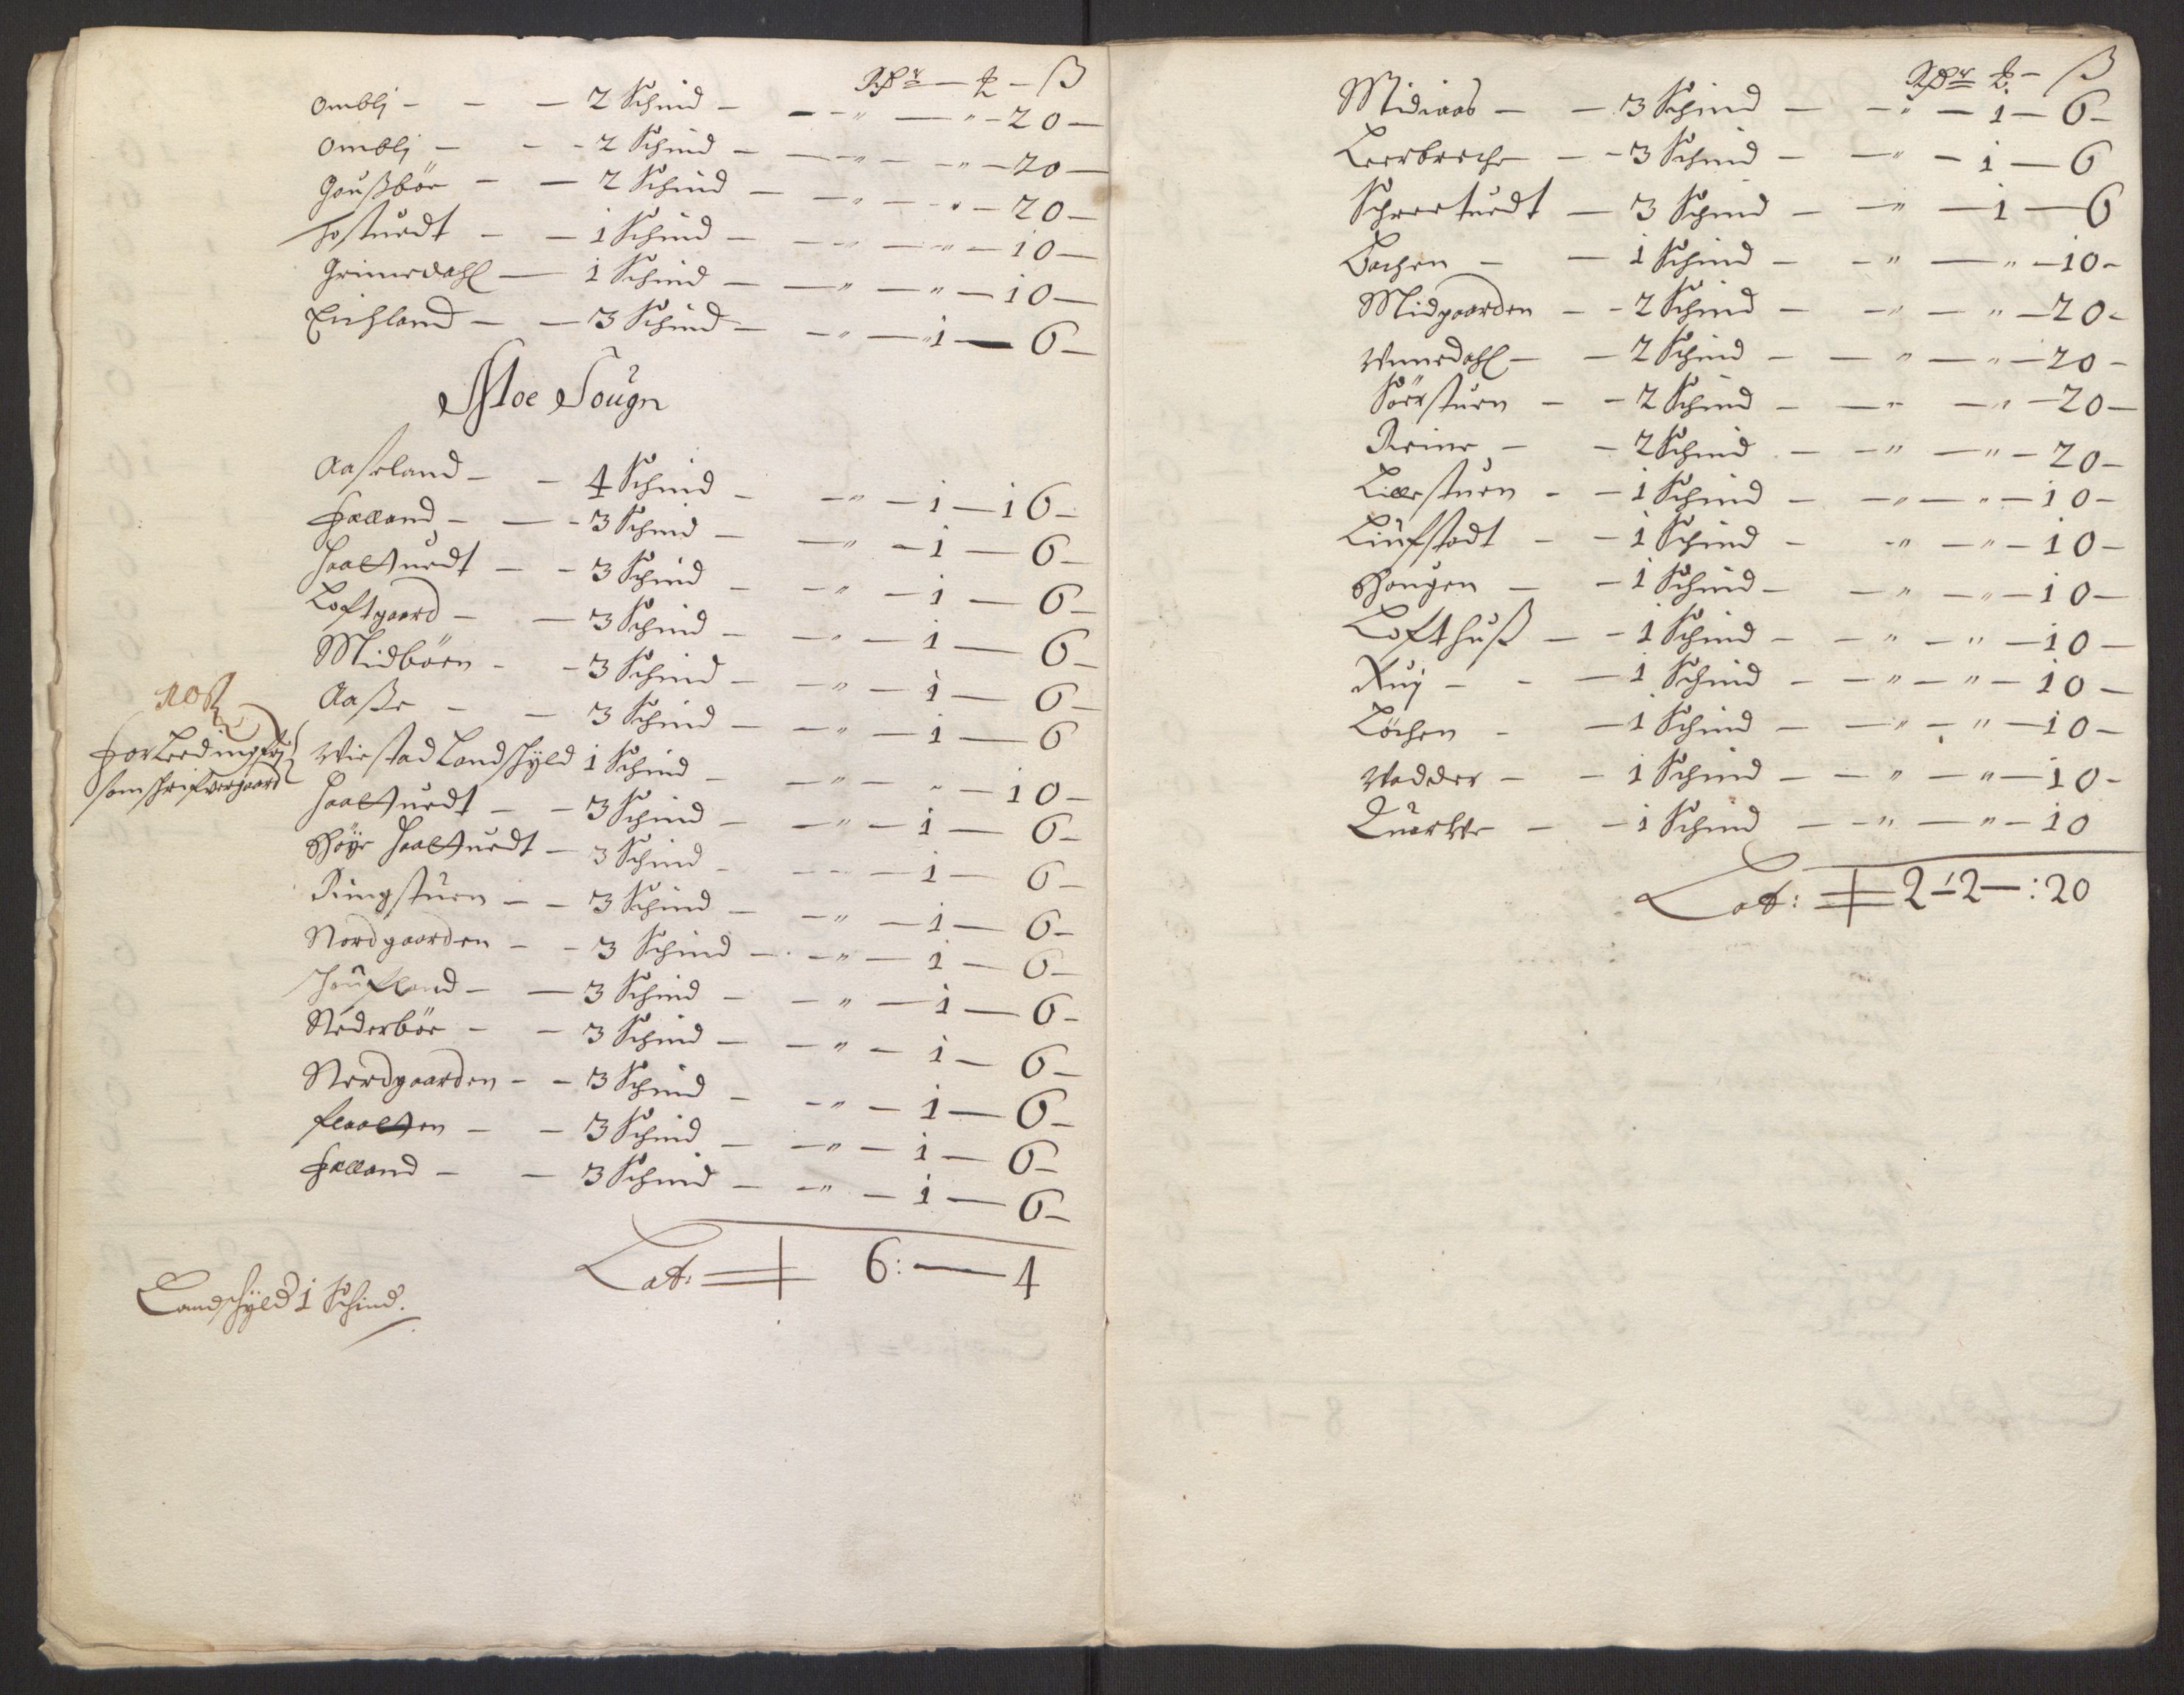 Rdr — ort — ß
Ombli — — — 2 Schind — — " — " — 20 —
Ombli — — — 2 Schind — — " — " — 20 —
Goußböe — — 2 Schind — — " — " — 20 —
Hostuedt — — 1 Schind — — " — " — 10 —
Grimsdahl — 1 Schind — — " — " — 10 —
Eichland — — 3 Schind — — " — 1 — 6 —
Moe Sougn
Aasland — — 4 Schind — — " — 1 — 16 —
Halland — — 3 Schind — — " — 1 — 6 —
Haattuedt — — 3 Schind — — " — 1 — 6 —
Loftgaard — — 3 Schind — — " — 1 — 6 —
Midböen — — 3 Schind — — " — 1 — 6 —
Aaße — — 3 Schind — — " — 1 — 6
10 ß
for Leedingfri
som schrifvergaard
Wiestad Landschyld 1 Schind — — " — " — 10 —
Haattuedt — — 3 Schind — — " — 1 — 6 —
Höye Haattuedt — 3 Schind — — — 1 — 6 —
Ringstuen — — 3 Schind — — " — 1 — 6 —
Nordgaarden — — 3 Schind — — " — 1 — 6 —
Houfland — — 3 Schind — — " — 1 — 6 —
Nederböe — — 3 Schind — — " — 1 — 6 —
Nerdgaarden — — 3 Schind — — " — 1 — 6 —
Flaatten — — 3 Schind — — " — 1 — 6 —
Halland — — 3 Schind — — " — 1 — 6 —
Lat: 6: — 4
Landschyld 1 Schind.
Rdr ort — ß
Midiaas — — 3 Schind — — " — 1 — 6 —
Leerbreche — — 3 Schind — — " — 1 — 6
Schreetuedt — 3 Schind — — " — 1 — 6
Bachen — — 1 Schind — — " — " — 10 —
Midgaarden — — 2 Schind — — " — " — 20 —
Wimesdahl — — 2 Schind — — " — " — 20 —
Söerstuen — — 2 Schind — — " — " — 20 —
Reine — — 2 Schind — — " — " — 20 —
Lillestuen — — 1 Schind — — " — " — 10 —
Liufstadt — — 1 Schind — — " — " — 10 —
Hougen — — 1 Schind — — " — " — 10 —
Lofthuß — — 1 Schind — — " — " — 10 —
Rui — — — 1 Schind — — " — " — 10 —
Löchen — — 1 Schind — — " — " — 10 —
Wadder — — 1 Schind — — " — " — 10 —
Quarke — — 1 Schind — — " — " — 10
Lat: 2 — 2 — : 20